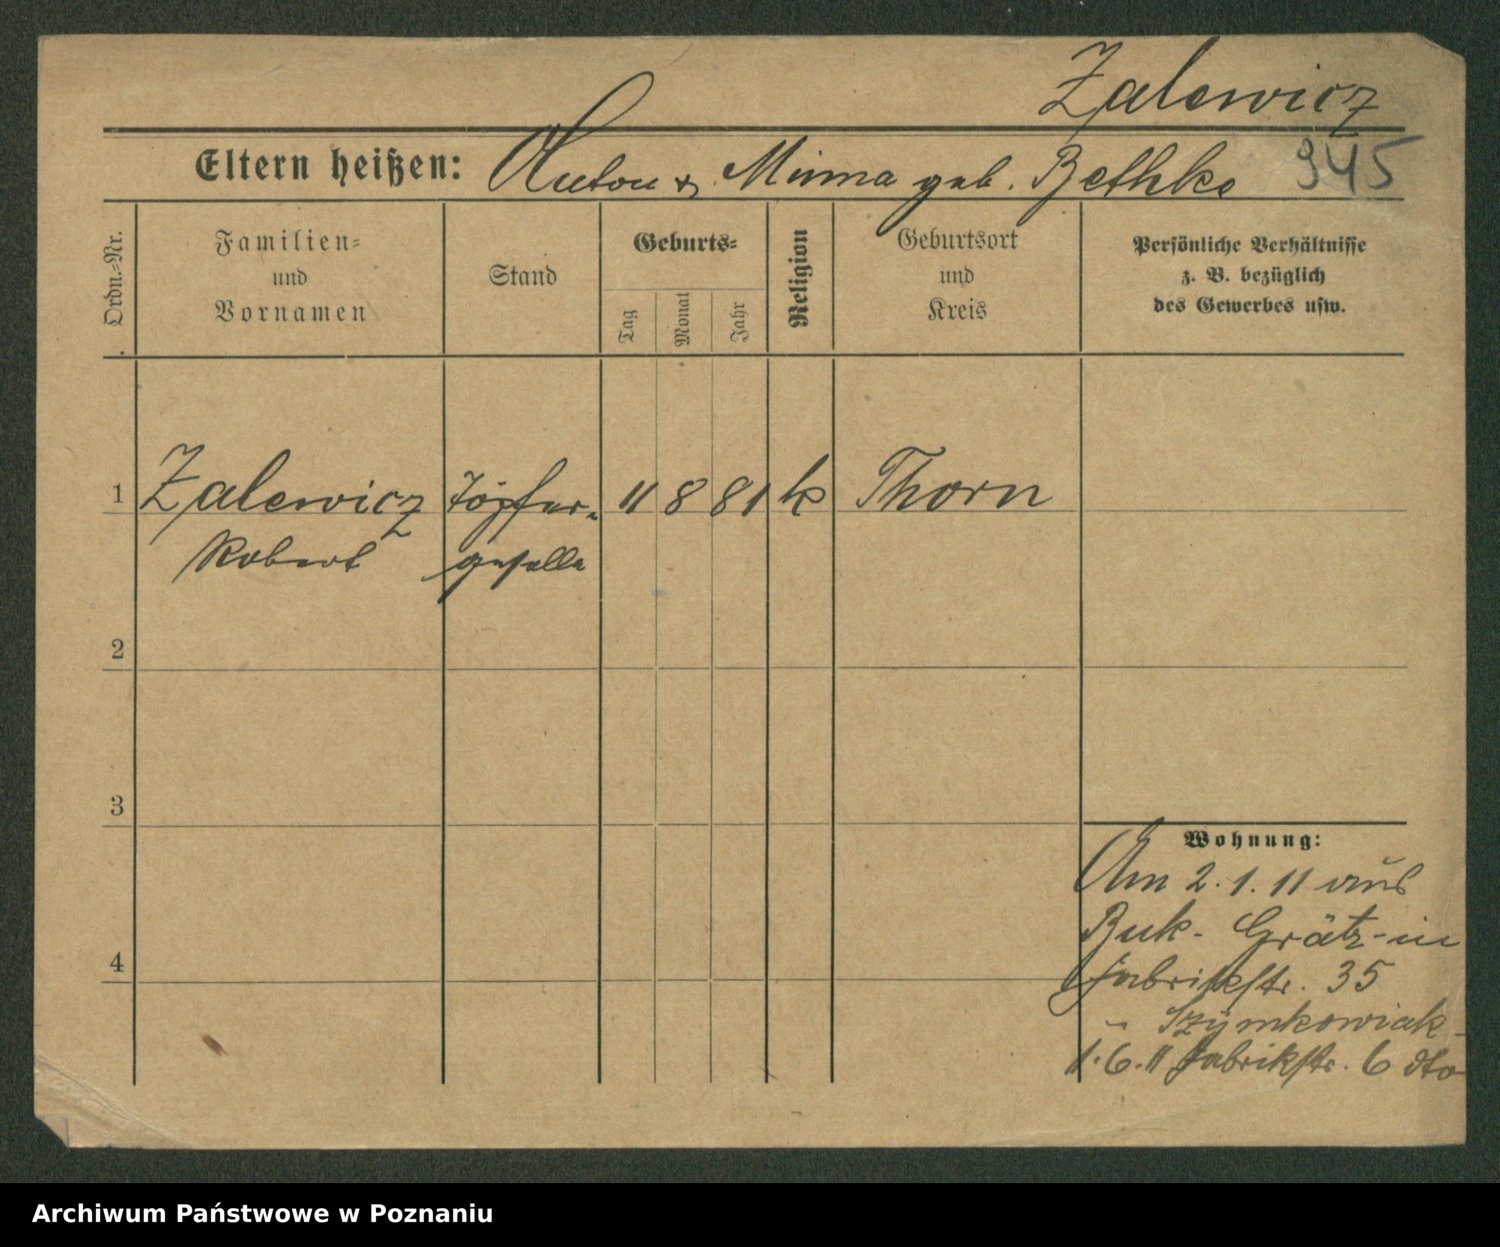 Zalewicz
Eltern heißen: Anton & Minna geb. Bethke 945
Ordn.=Nr.
Familien=
und
Vornamen
Stand
Geburts=
Tag
Monat
Jahr
Religion
Geburtsort
und
Kreis
Persönliche Verhältnisse
z. B. bezüglich
des Gewerbes usw.
1 Zalewicz Töpfer- 11 8 81 k Thorn
Robert geselle
2
3
4
Wohnung:
Am 2. 1. 11 aus
Buk - Grätz - in
Fabrikstr. 35
Szymkowiak -
1. 6. 11 Fabrikstr. 6 dto
Archiwum Państwowe w Poznaniu